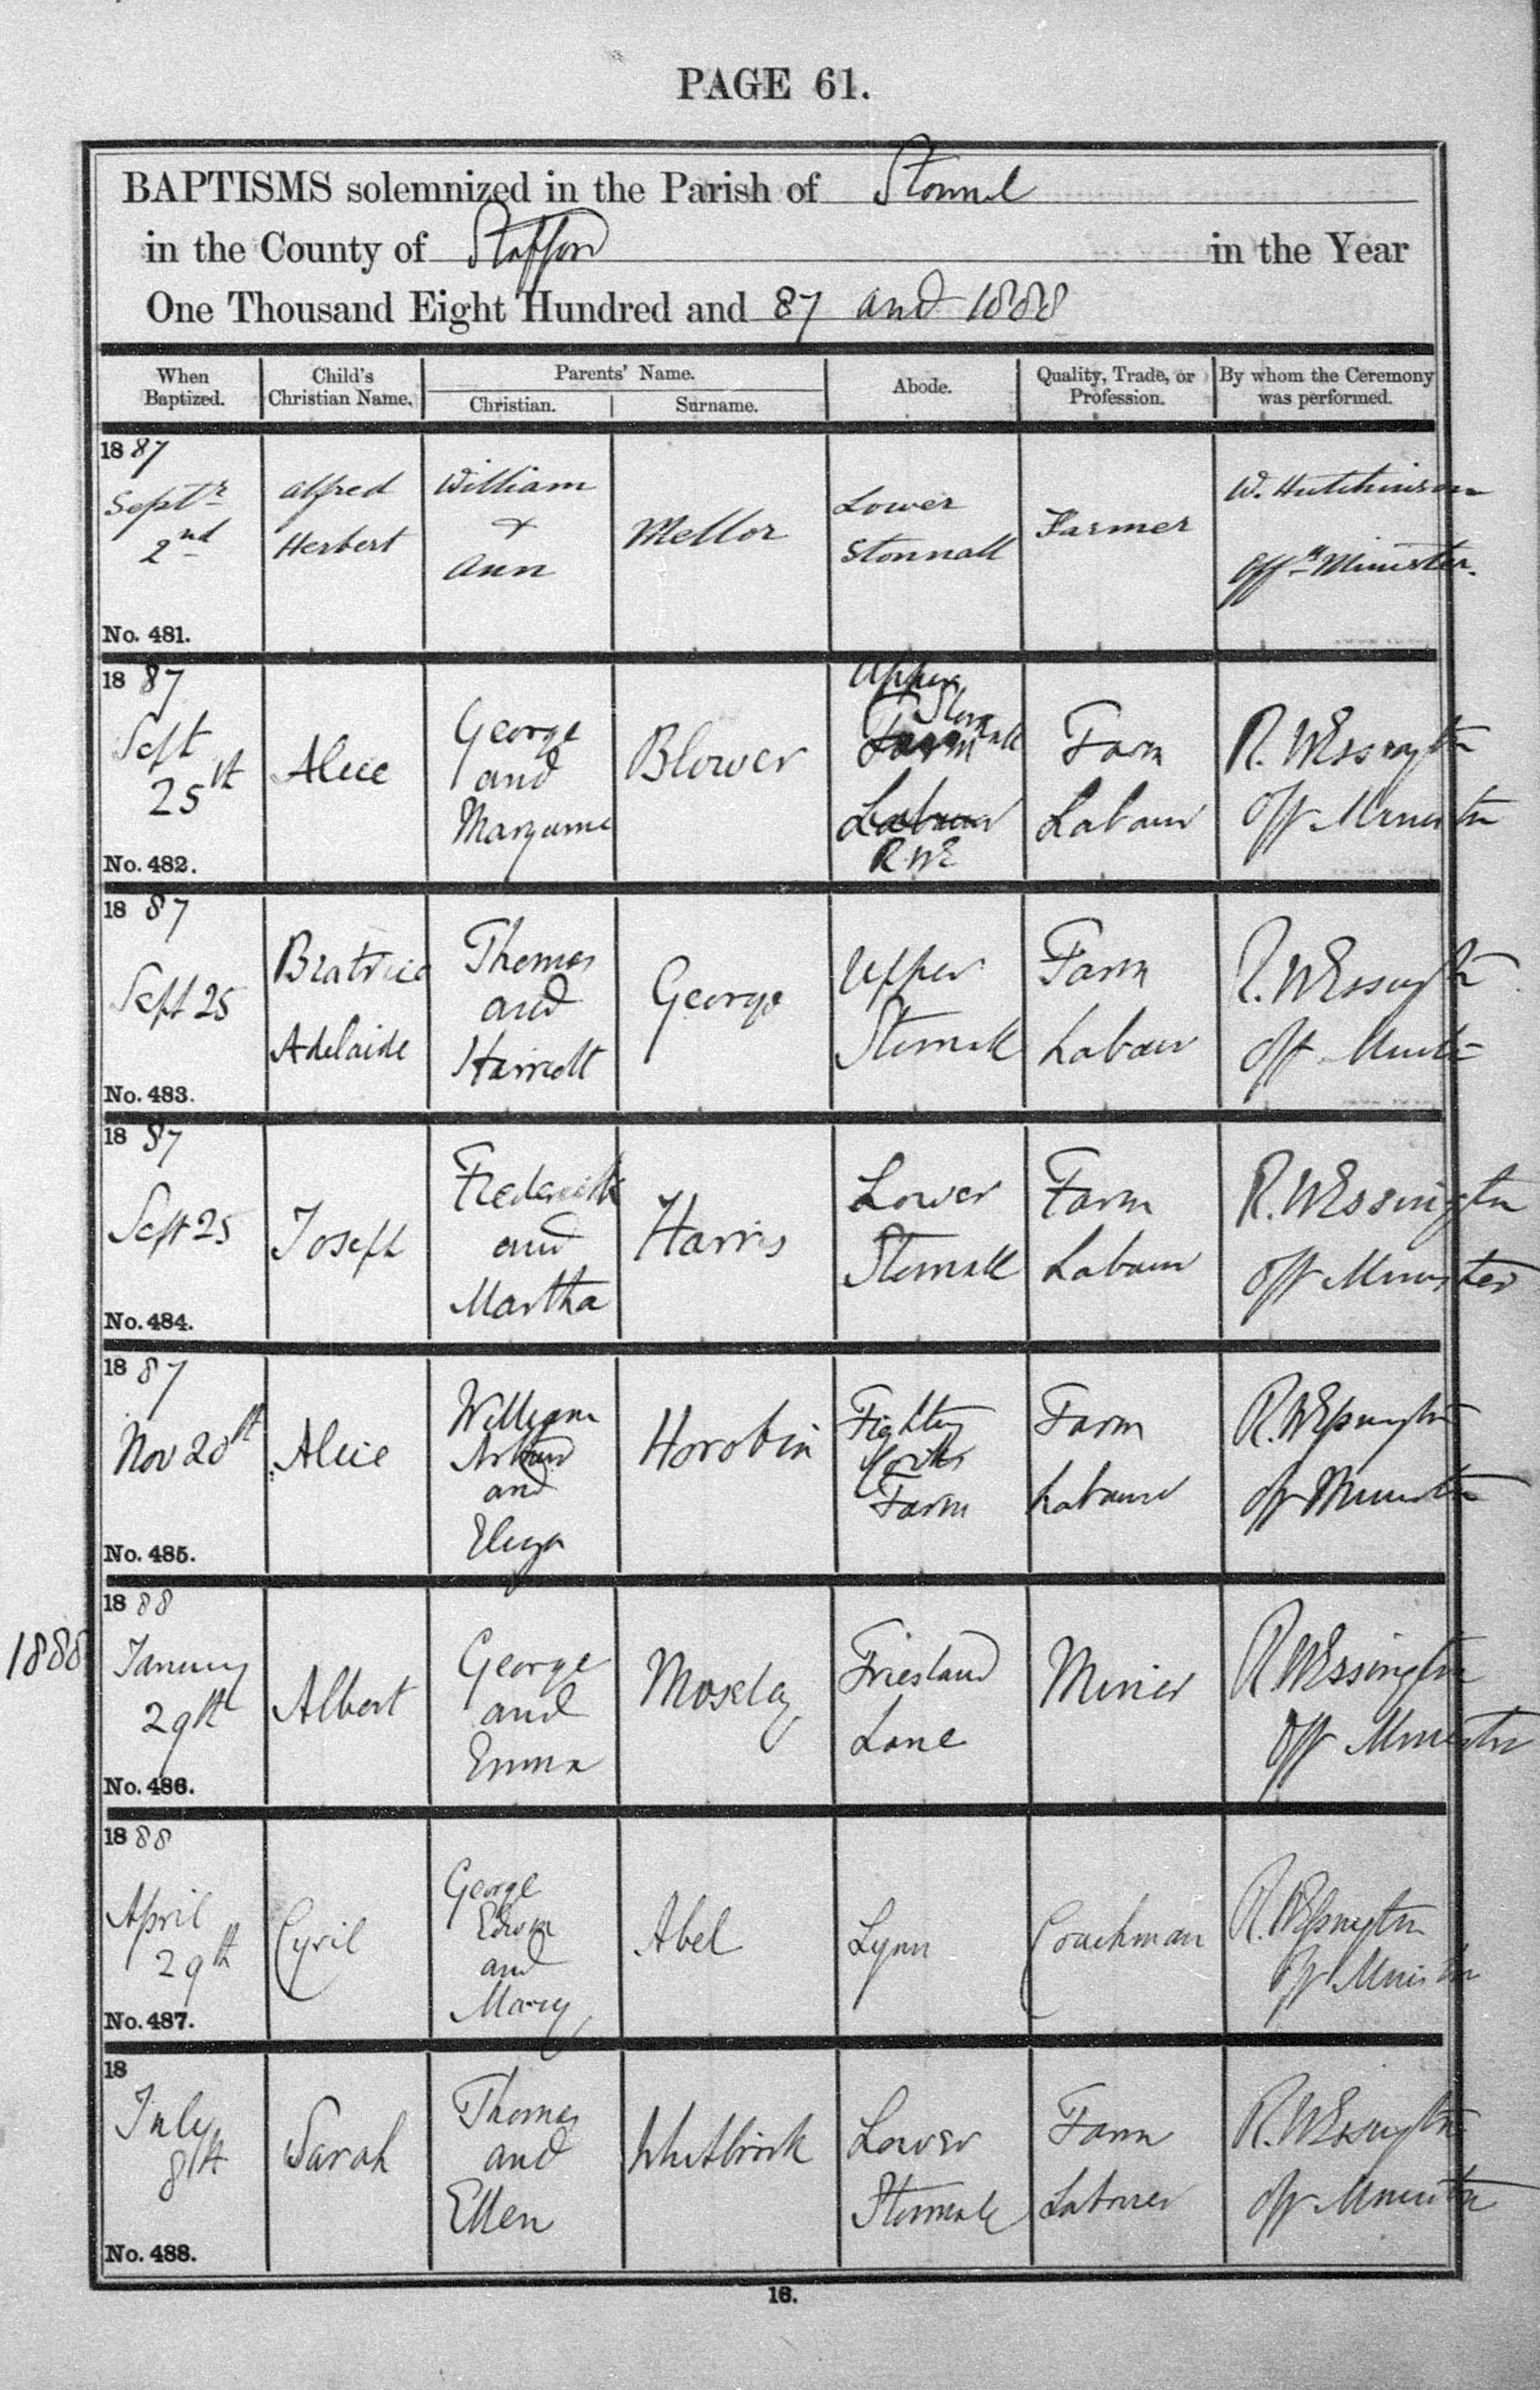 PAGE 61.
BAPTISMS solemnized in the Parish of Stonnal
in the County of Stafford in the Year
One Thousand Eight Hundred and 87 and 1888
When Baptized.
Child's Christian Name.
Parents' Name.
Christian.
Surname.
Abode.
Quality, Trade, or Profession.
By whom the Ceremony was performed.
1887
Septr
2nd
No. 481.
Alfred
Herbert
William
+
Ann
Mellor
Lower
Stonnall
Farmer
W. Hutchinson
Offg Minister.
1887
Sept
25th
No. 482.
Alice
George
and
Blower
Upper
Stonnall
Farm
Labour
R.W.E
Farm
Labour
R. W Essington
Off Minister
1887
Sept 25
No. 483.
Beatrice
Adelaide
Thomas
and
Harriett
George
Upper
Stonnall
Farm
Labour
R. W Essington
Off Minister
1887
Sept 25
No. 484.
Joseph
Frederick
and
Martha
Harris
Lower
Stonnall
Farm
Labour
R. W Essington
Off Minister
1887
Nov 20th
No. 485.
Alice
William
Arthur
and
Eliza
Horobin
Fighting
Cocks
Farm
Farm
Labourer
R. W Essington
Off Minister
1888
1888
January
29th
No. 486.
Albert
George
and
Emma
Moseley
Friesland
Lane
Miner
R W Essington
Off Minister
1888
April
29th
No. 487.
Cyril
George
Edwin
and
Mary
Abel
Lynn
Coachman
R. W Essington
Off Minister
18
July
8th
No. 488.
Sarah
Thomas
and
Ellen
Whitbrook
Lower
Stonnall
Farm
Labourer
R. W Essington
Off Minister
16.